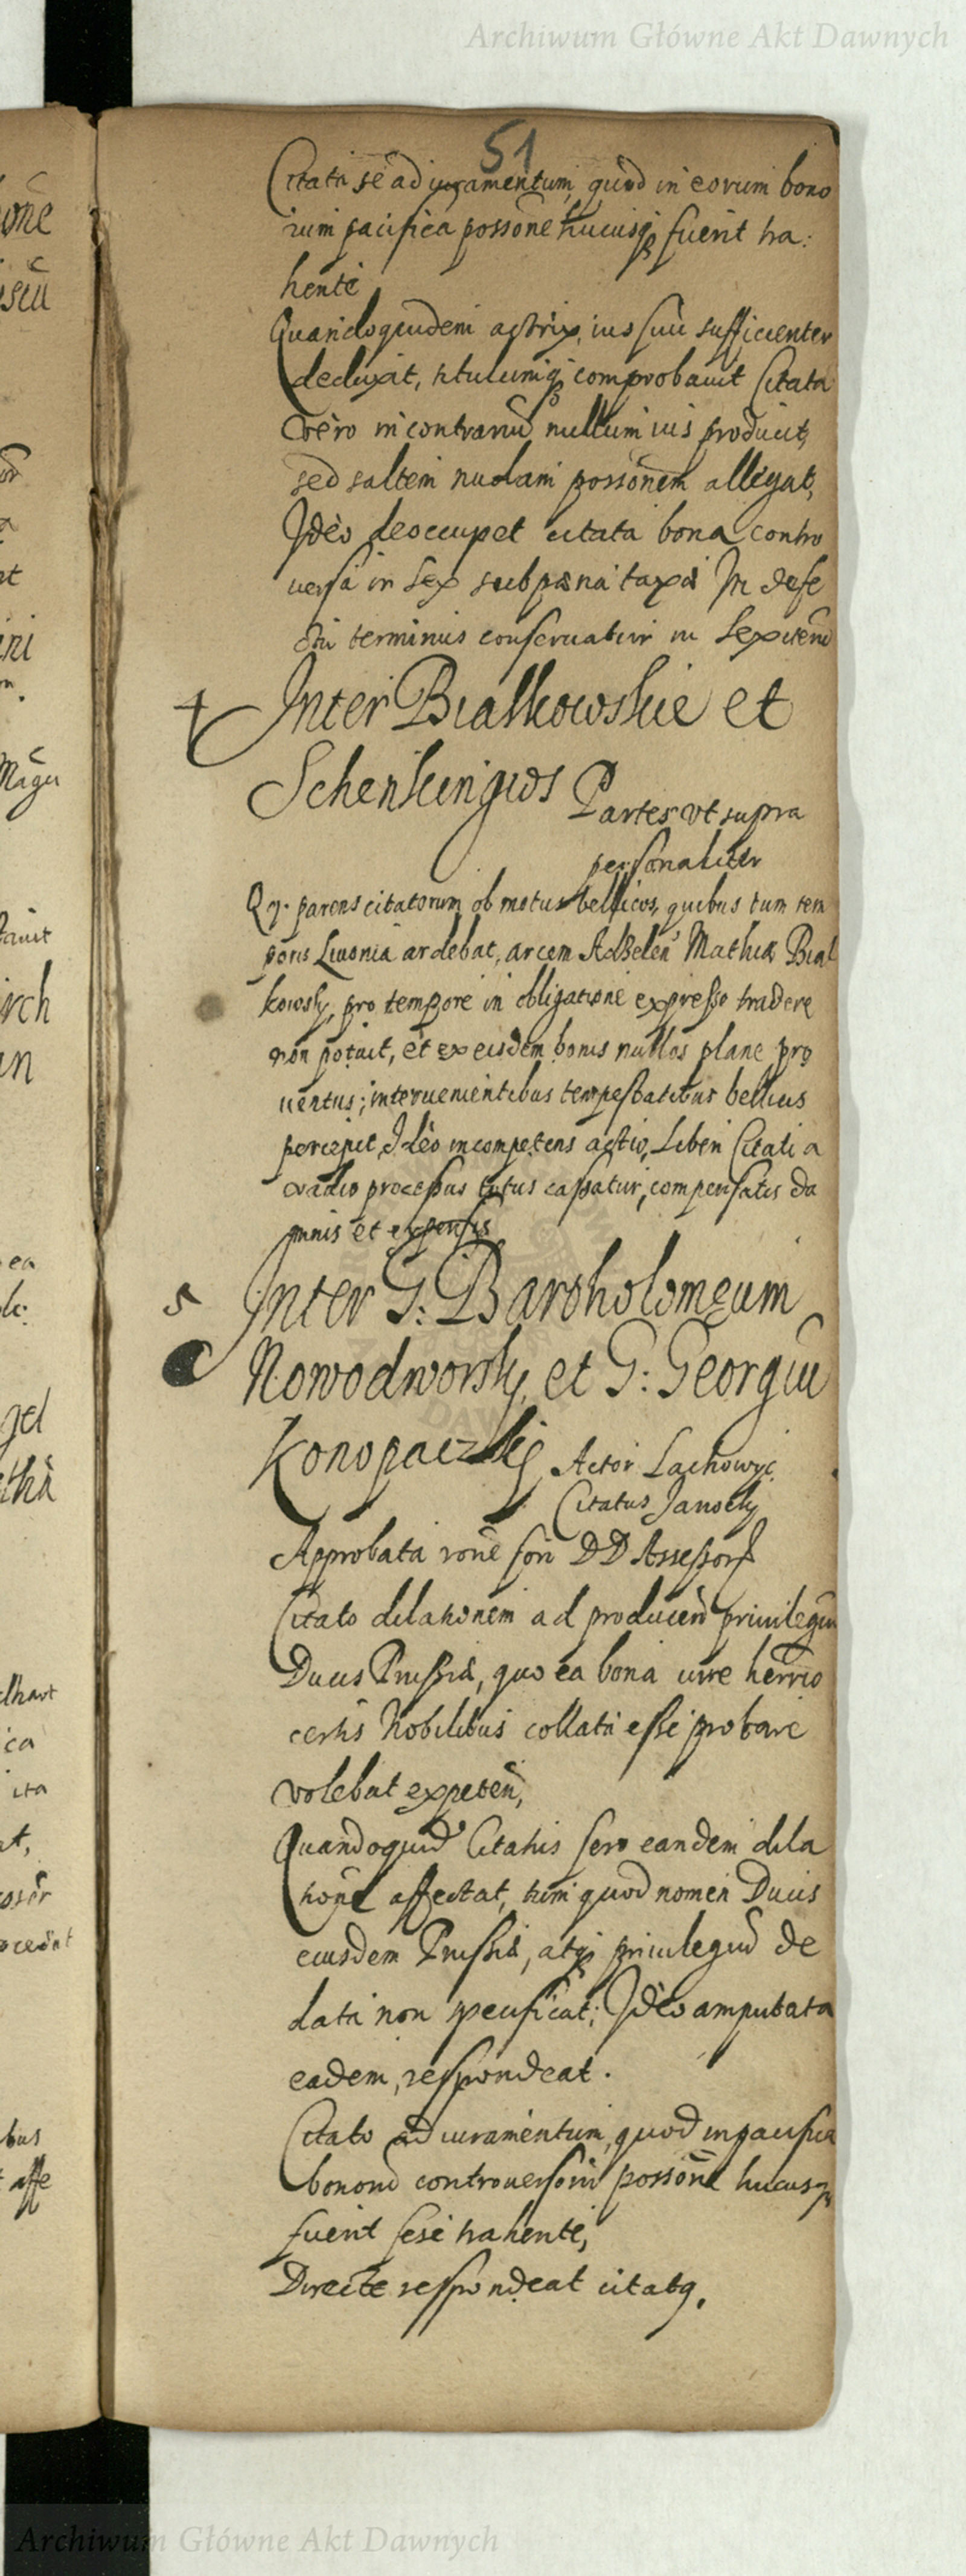 Archiwum Główne Akt Dawnych
51
Citata se ad iuramentum, quod in eorum bono
rum pacifica possone hucusq fuerit tra:
hente
Quandoquidem actrix, ius suu sufficienter
deduxit, titulumq comprobauit Citata
vero in contrariu nullum ius producit,
sed saltem nudam possonem allegat,
Ideo deoccupet citata bona contro
uersa in sex sub pæna taxæ In defe
ctu terminus conseruatur in sex
4 Inter Bialkowskie et
Schenkingios Partes vt supra
personaliter
Qq. parens citatorum ob motus bellicos, quibus tum tem
poris Liuonia ardebat, arcem Adzelen Mathiæ Bial
kowsky, pro tempore in obligatione expresso tradere
non potuit, et ex eisdem bonis nullos plane pro
uentus; interuenientibus tempestatibus bellicis
percepit, Ideo incompetens actio, Liberi Citati a
vadio processus totus cassatur, compensatis da
mnis et expensis
5 Inter G: Bartholomęum
Nowodworsky, et G: Georgiu
Konopaczkij Actor Lachowyc
Citatus Janocky
Approbata rone fori DD Assessor
Citato dilationem ad producend priuilegiu
Ducis Prussiæ, quo ea bona iure herrio
certis Nobilibus collata esse probare
volebat expeten,
Quandoquid Citatus sero eandem dila
tione affectat, tum quod nomen Ducis
eiusdem Prussiæ, atq priuilegiu de
data non specificat; Ideo amputata
eadem, respondeat.
Citato ad iuramentum, quod in pacifica
bonoru controuersoru possone hucusq
fuerit sese trahente,
Directe respondeat citatq.
Archiwum Główne Akt Dawnych